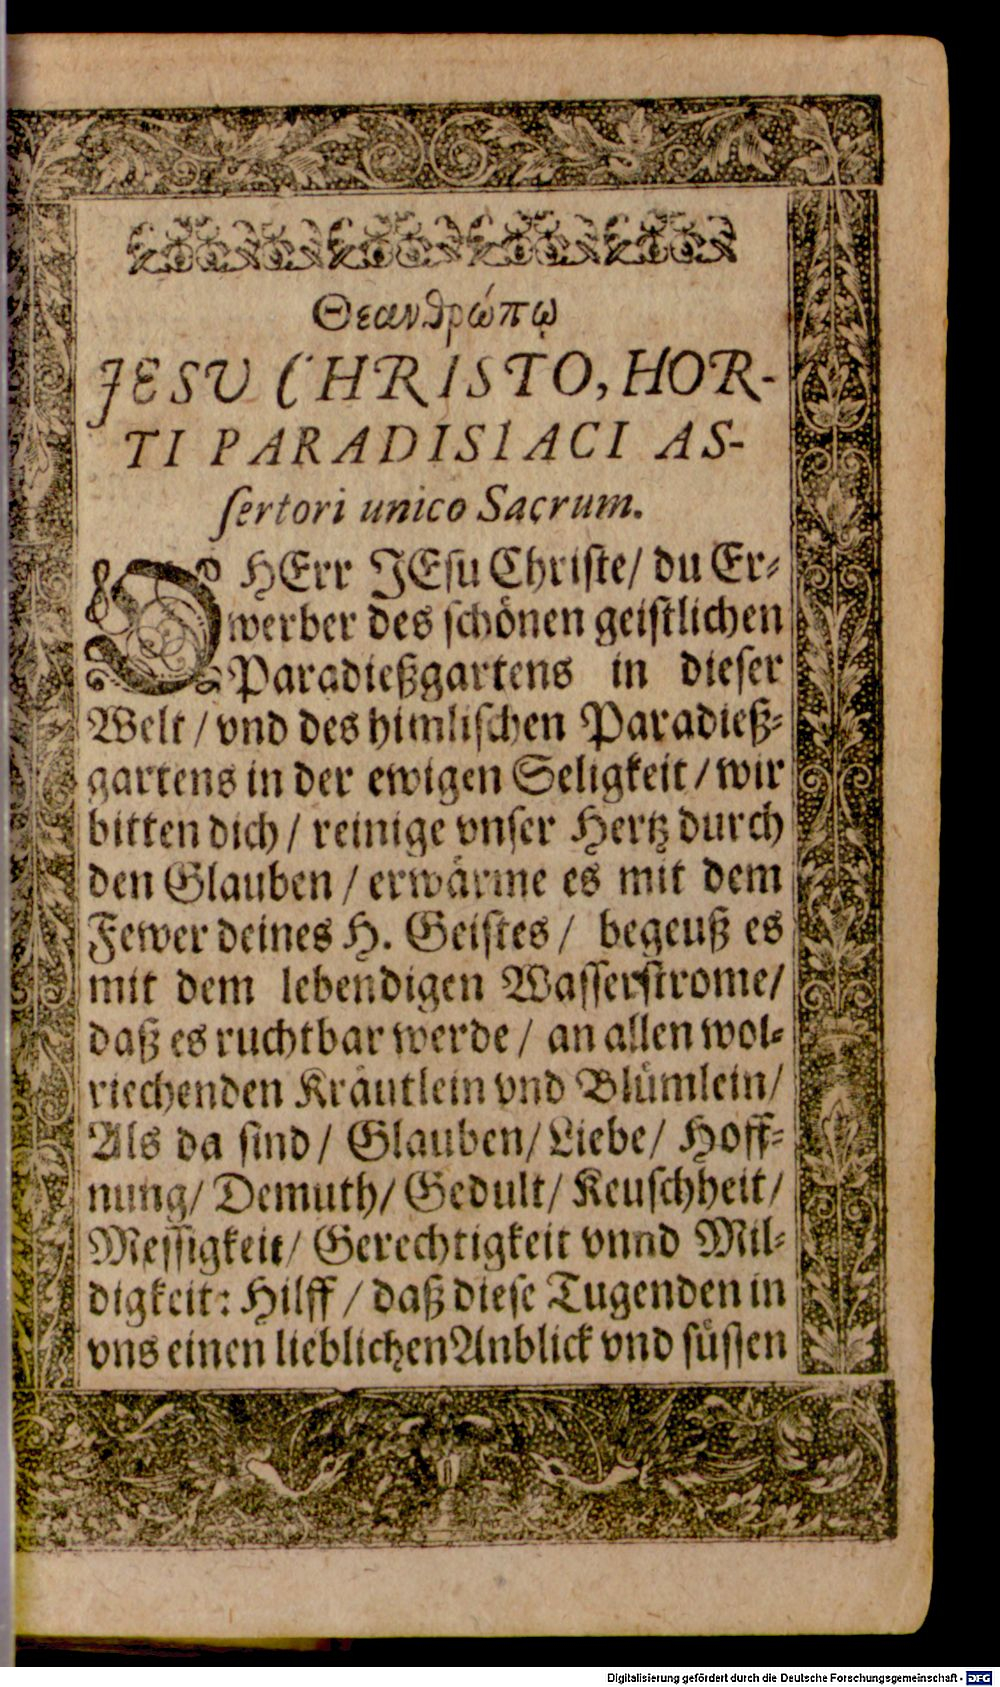 Θεανθρώπῳ
JESU CHRISTO, HOR-
TI PARADISIACI AS-
sertori unico Sacrum.
O HErr JEsu Christe/ du Er-
werber des schönen geistlichen
Paradießgartens in dieser
Welt/ vnd des himlischen Paradieß-
gartens in der ewigen Seligkeit/ wir
bitten dich/ reinige vnser Hertz durch
den Glauben/ erwärme es mit dem
Fewer deines H. Geistes/ begeuß es
mit dem lebendigen Wasserstrome/
daß es ruchtbar werde/ an allen wol-
riechenden Kräutlein vnd Blümlein/
Als da sind/ Glauben/ Liebe/ Hoff-
nung/ Demuth/ Gedult/ Keuschheit/
Messigkeit/ Gerechtigkeit vnnd Mil-
digkeit: Hilff/ daß diese Tugenden in
vns einen lieblichen Anblick vnd süssen
Digitalisierung gefördert durch die Deutsche Forschungsgemeinschaft - DFG